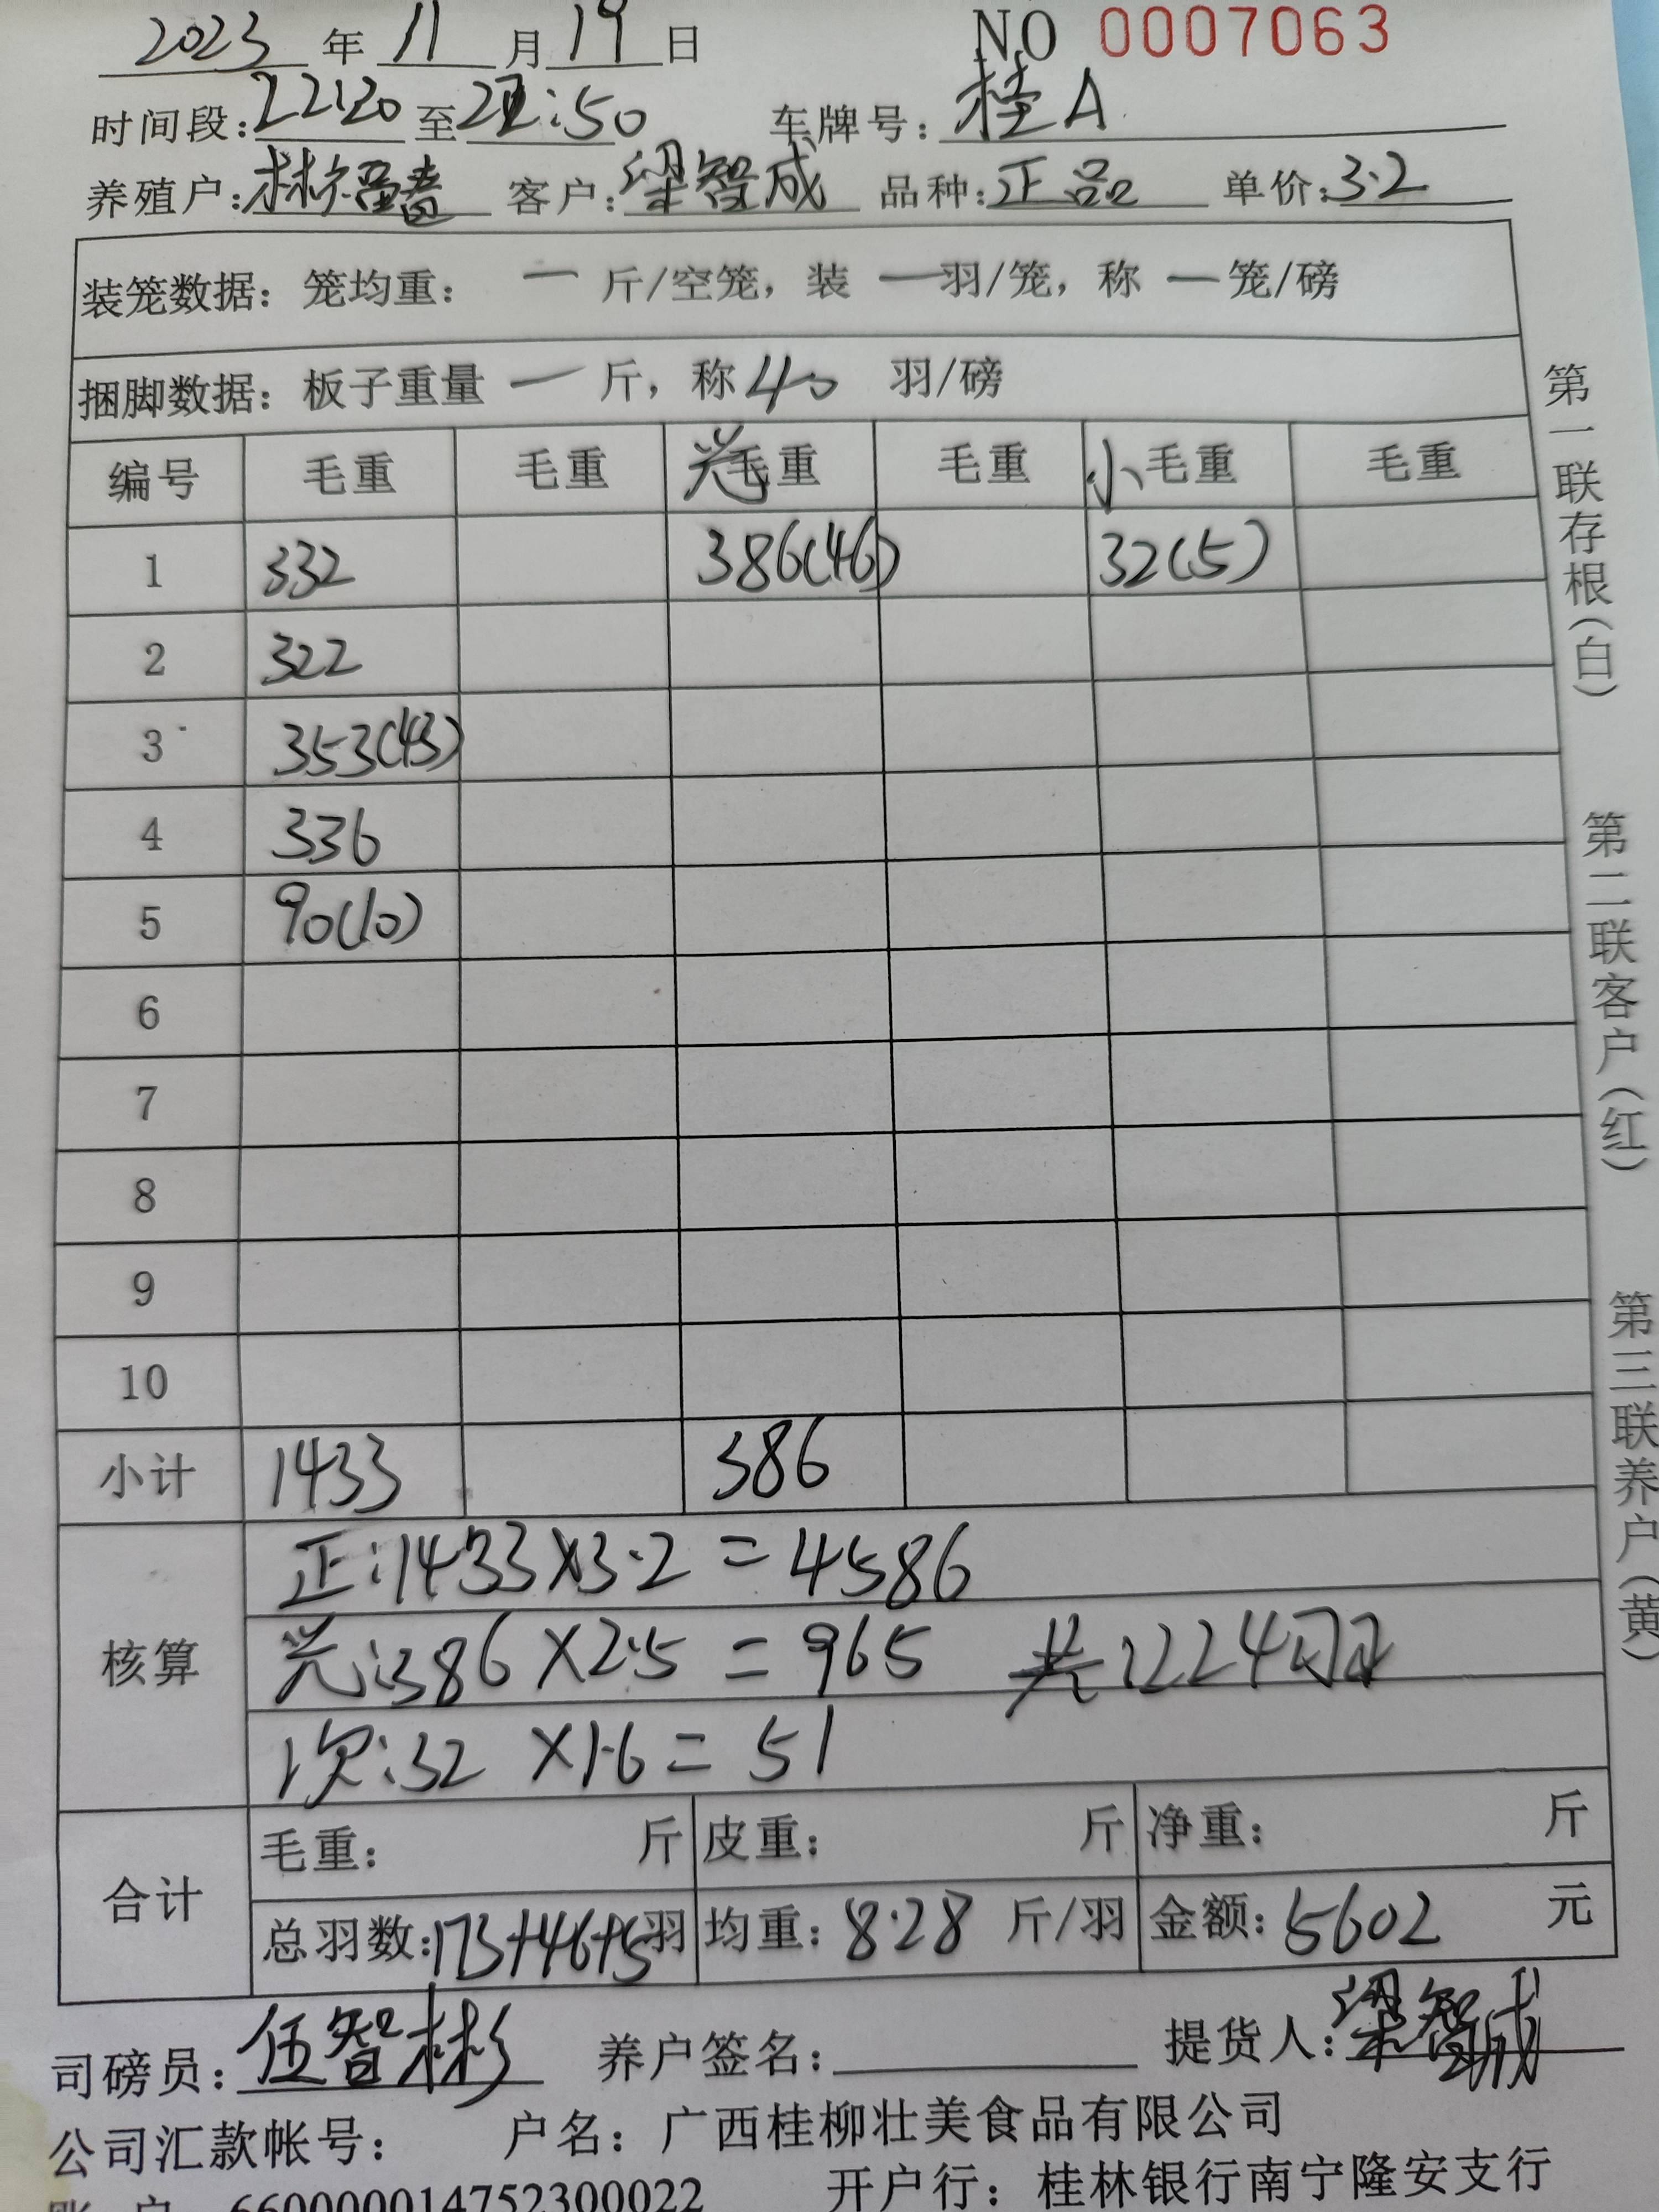 2023 年 11 月 19 日 NO 0007063
时间段: 22:20 至 22:50 车牌号: 桂A
养殖户: 客户: 梁智成 品种: 正品 单价: 3.2
装笼数据: 笼均重: 一 斤/空笼, 装 一 羽/笼, 称 一 笼/磅
捆脚数据: 板子重量 一 斤, 称 40 羽/磅
编号 毛重 毛重 毛重 毛重 小 毛重 毛重
1 332 386(46) 32(5)
2 322
3 353(43)
4 336
5 90(10)
6
7
8
9
10
小计 1433 386
核算 正:1433×3.2=4586
:386×2.5=965 共:224羽
次:32×1.6=51
合计 毛重: 斤 皮重: 斤 净重: 斤
总羽数:173+46+5羽 均重:8.28 斤/羽 金额:5602 元
司磅员: 伍智彬 养户签名: 提货人: 梁智成
公司汇款帐号: 户名: 广西桂柳壮美食品有限公司
账 户 660000014752300022 开户行: 桂林银行南宁隆安支行
第一联存根(白)
第二联客户(红)
第三联养户(黄)